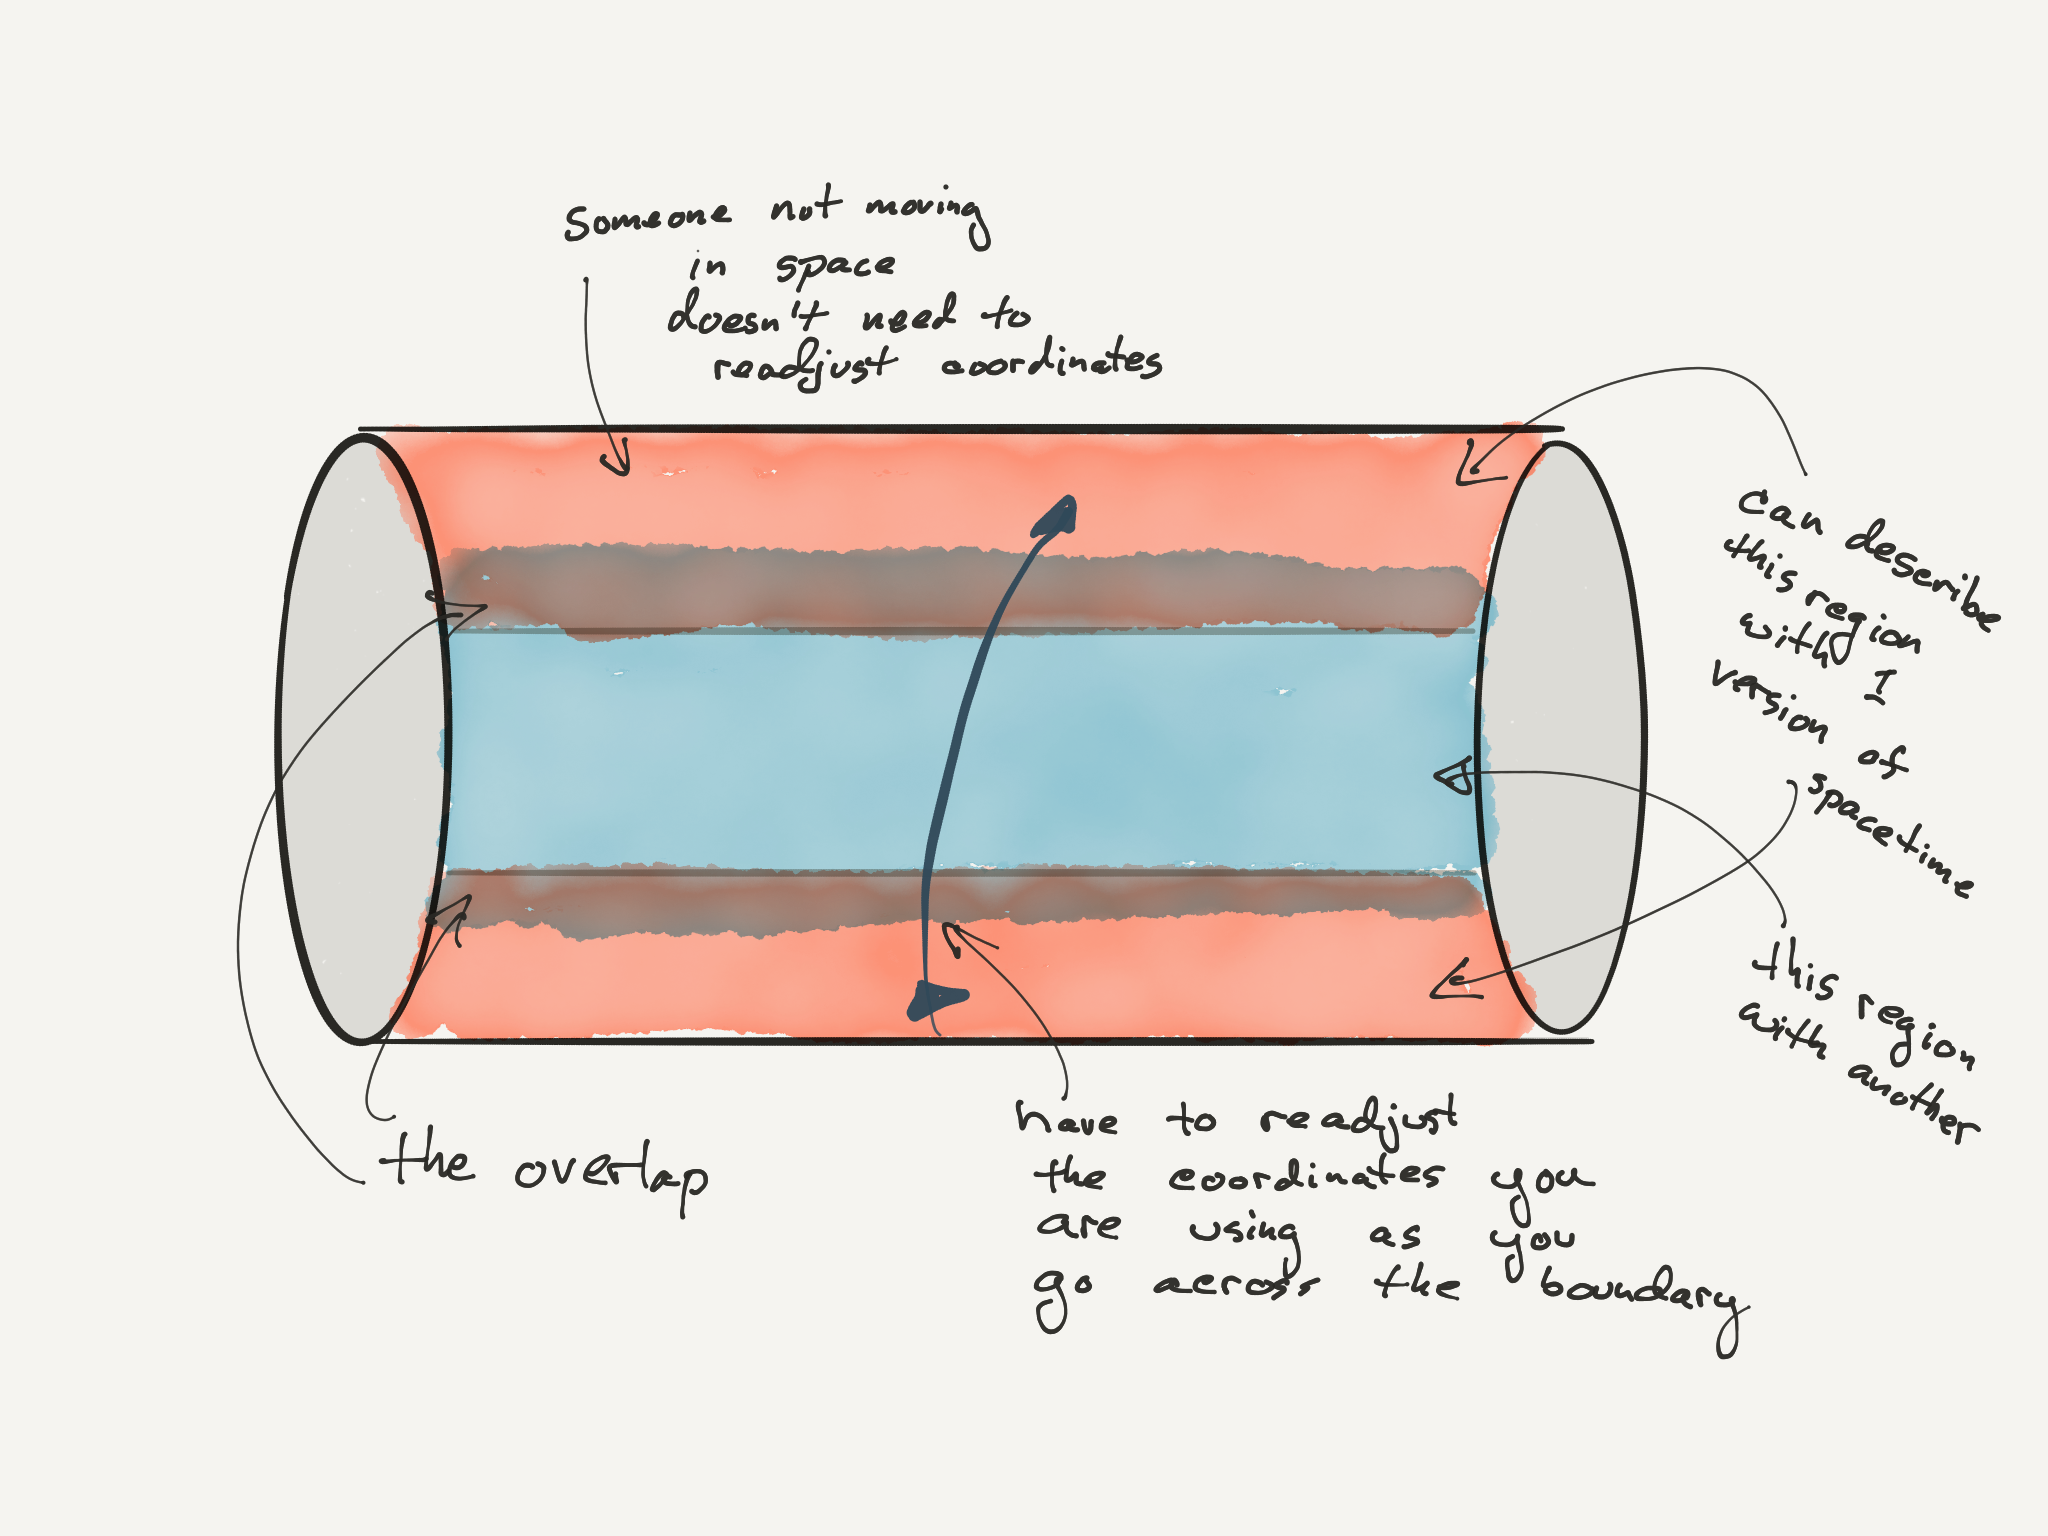 Someone not moving
in space
doesn't need to
readjust coordinates
Can describe
this region
with 1
version of
spacetime
this region
with another
the overlap
have to readjust
the coordinates you
are using as you
go across the boundary